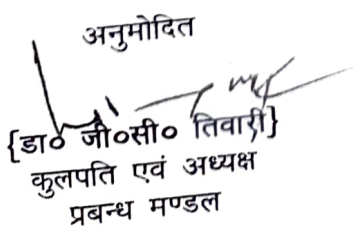 अनुमोदित
{डा० जी०सी० तिवारी}
कुलपति एवं अध्यक्ष
प्रबन्ध मण्डल